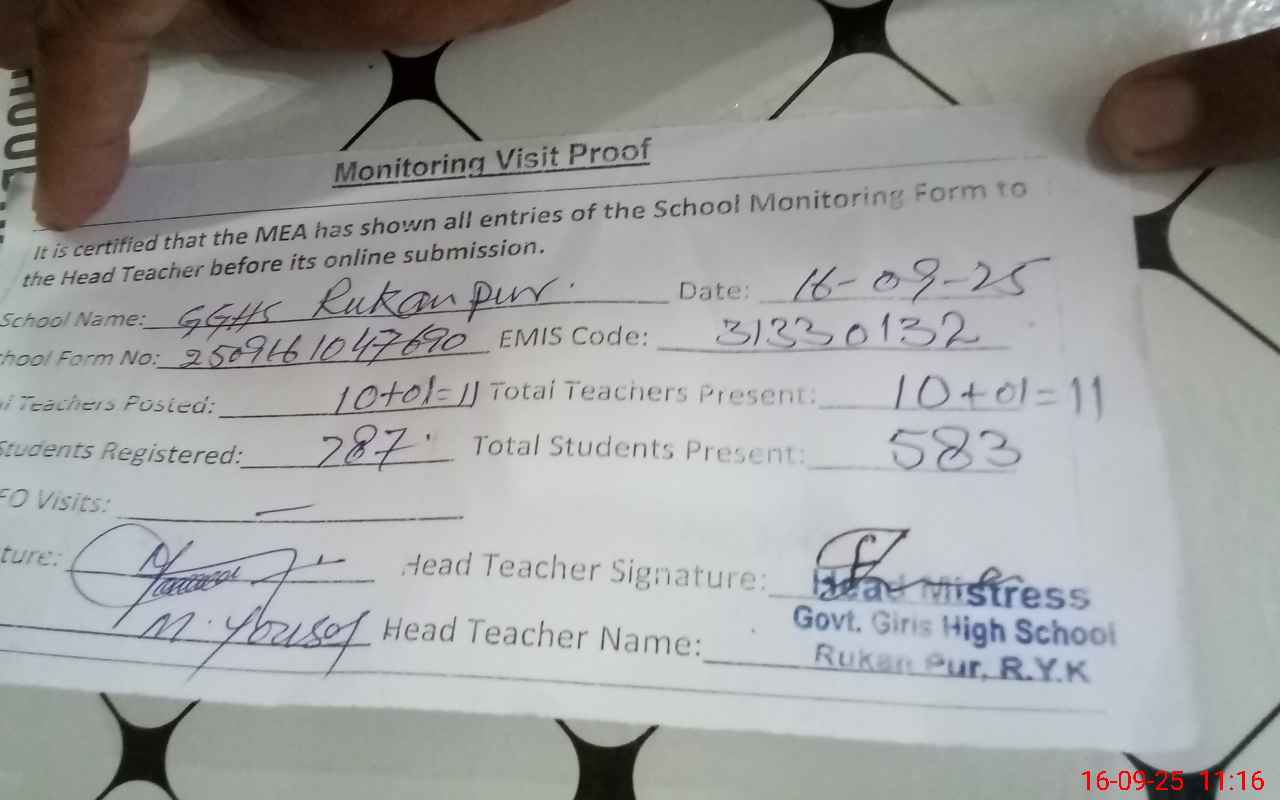 Monitoring Visit Proof
It is certified that the MEA has shown all entries of the School Monitoring Form to
the Head Teacher before its online submission.
School Name: GGHS Rukanpur. Date: 16-09-25
hool Form No: 2509161047690 EMIS Code: 31330132
Teachers Posted: 10+01=11 Total Teachers Present: 10+01=11
Students Registered: 787. Total Students Present: 583
EO Visits: —
ture: Head Teacher Signature:
M. Yousaf Head Teacher Name:
Head Mistress
Govt. Girls High School
Rukan Pur, R.Y.K
16-09-25 11:16